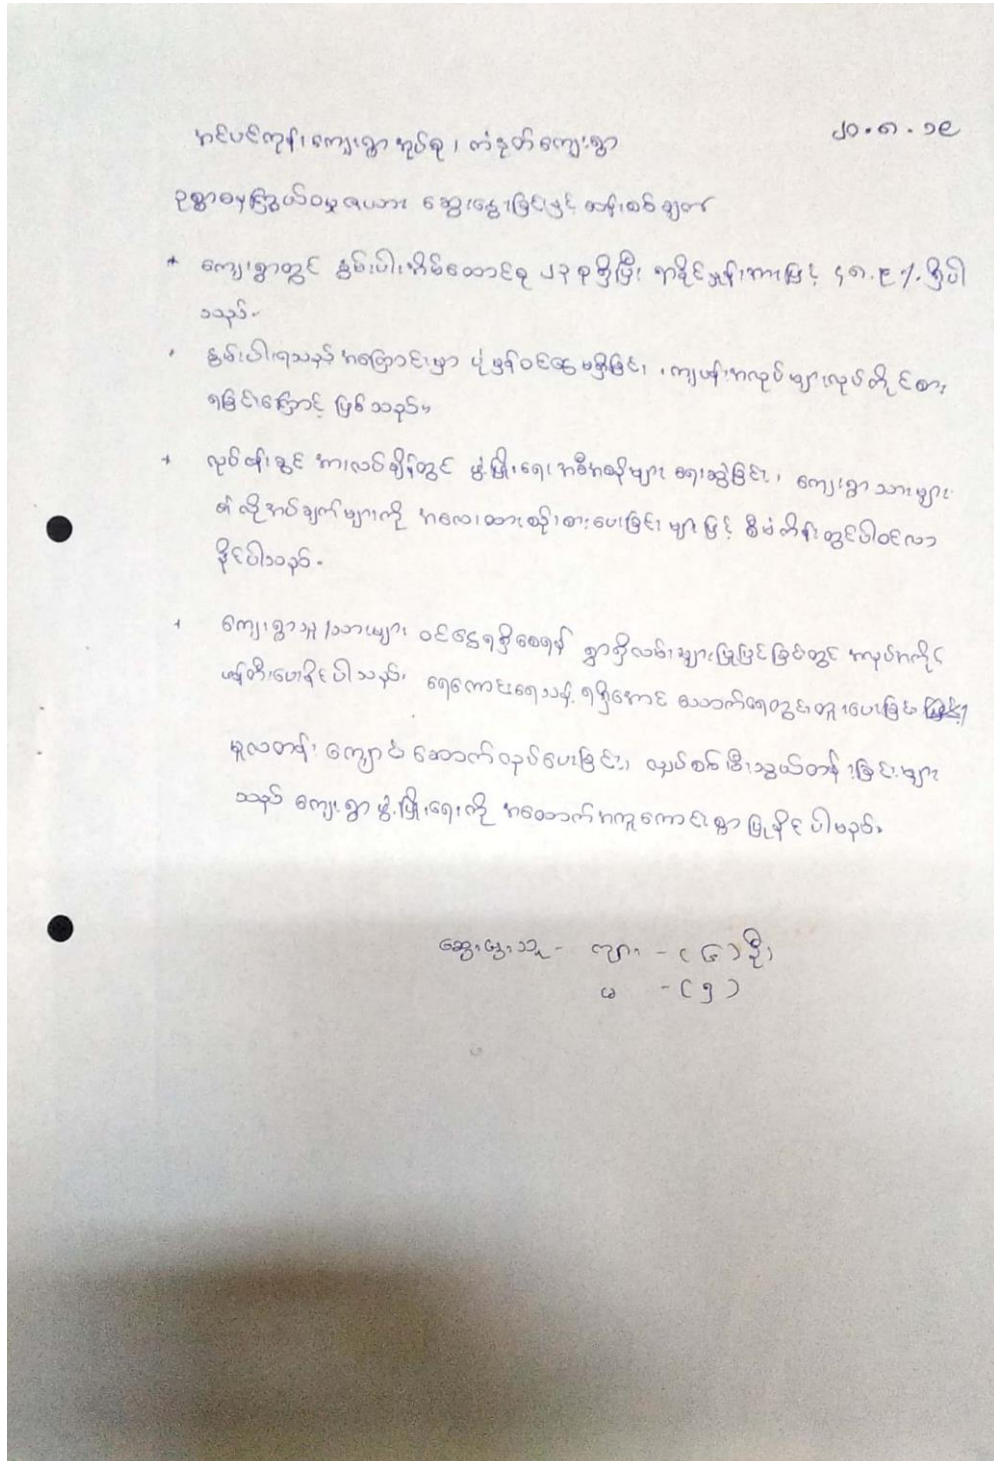 ၂၀.၈.၁၉
အင်ပင်ကုန်းကျေးရွာအုပ်စု၊ ကံခုတ်ကျေးရွာ
ဥစ္စာဓနကြွယ်ဝမှုဇယား ဆွေးနွေးခြင်းနှင့် ဆန်းစစ်ချက်
* ကျေးရွာတွင် နွမ်းပါးအိမ်ထောင်စု ၂၃ စုရှိပြီး ရာခိုင်နှုန်းအားဖြင့် ၄၈.၉ % ရှိပါ
သည်။
နွမ်းပါးရသည့် အကြောင်းမှာ ပုံမှန်ဝင်ငွေမရှိခြင်း၊ ကျပန်းအလုပ်များလုပ်ကိုင်စား
ရခြင်းကြောင့် ဖြစ်သည်။
+ လုပ်ငန်းခွင် အားလပ်ချိန်တွင် ဖွံ့ဖြိုးရေး အစီအစဉ်များ ရေးဆွဲခြင်း၊ ကျေးရွာသားများ
၏ လိုအပ်ချက်များကို အလေးထားစဉ်းစားပေးခြင်း များဖြင့် စီမံကိန်းတွင်ပါဝင်လာ
နိုင်ပါသည်။
+ ကျေးရွာသူ/သားများ ဝင်ငွေရရှိစေရန် ရွာရှိလမ်းများပြုပြင်ခြင်းတွင် အလုပ်အကိုင်
ဖန်တီးပေးနိုင်ပါသည်။ ရေကောင်းရေသန့် ရရှိအောင် သောက်ရေတွင်းတူးပေးခြင်း
မူလတန်း ကျောင်းဆောက်လုပ်ပေးခြင်း၊ လျှပ်စစ်မီးသွယ်တန်းခြင်းများ
သည် ကျေးရွာဖွံ့ဖြိုးရေးကို အထောက်အကူကောင်းစွာ ပြုနိုင်ပါမည်။
ဆွေးနွေးသူ - ကျား - (၆) ဦး
မ - (၅)